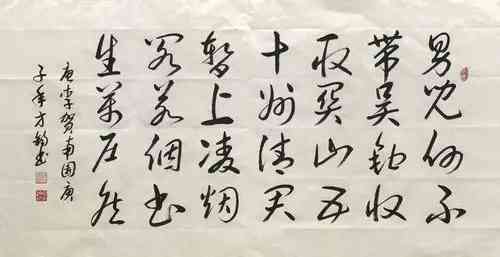 男兒何不
带吴钩收
取关山五
十州请君
暂上凌烟
阁若個书
生萬户侯
唐李贺南园庚
子年方书